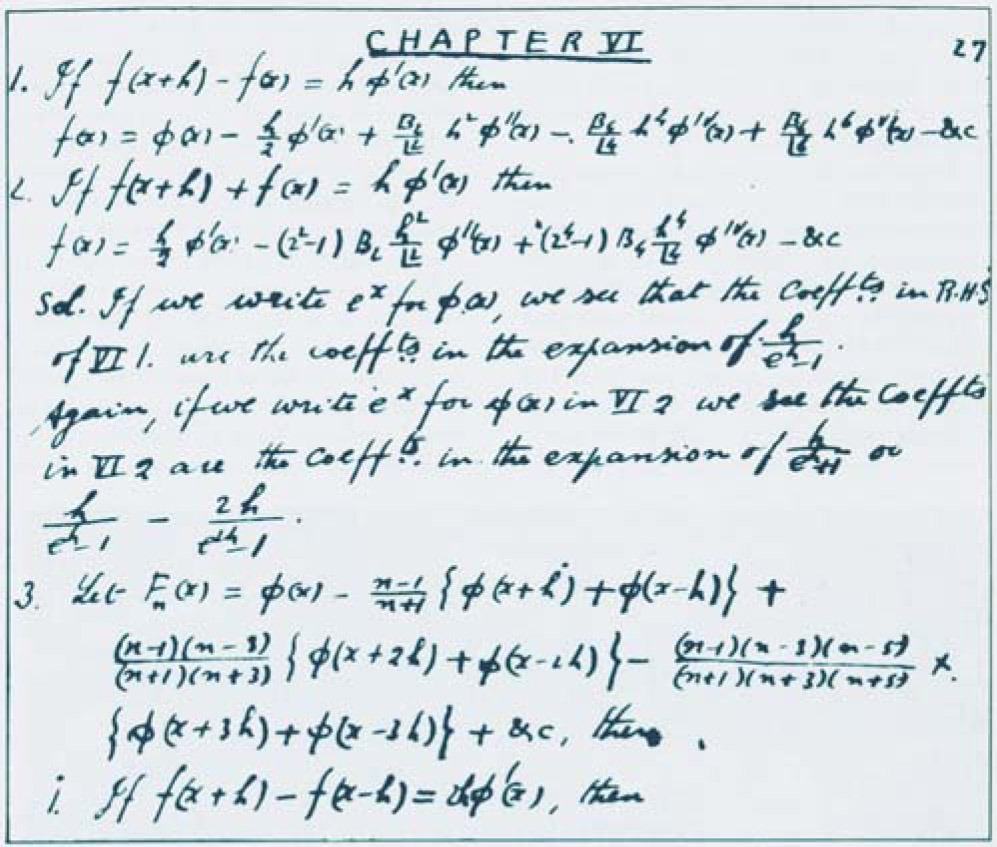 CHAPTER VI 27
1. If f(x+h) - f(x) = h φ'(x) then
f(x) = φ(x) - h/2 φ'(x) + B₂/⌊2 h² φ''(x) - B₄/⌊4 h⁴ φ^{IV}(x) + B₆/⌊6 h⁶ φ^{VI}(x) - &c
2. If f(x+h) + f(x) = h φ'(x) then
f(x) = h/2 φ'(x) - (2²-1) B₂ h²/⌊2 φ''(x) + (2⁴-1) B₄ h⁴/⌊4 φ^{IV}(x) - &c
Sol. If we write eˣ for φ(x), we see that the coeffts. in R.H.S
of VI 1. are the coeffts. in the expansion of h/(eʰ-1).
Again, if we write eˣ for φ(x) in VI 2 we see the coeffts
in VI 2 are the coeffts. in the expansion of h/(eʰ+1) or
h/(eʰ-1) - 2h/(e²ʰ-1).
3. Let Fₙ(x) = φ(x) - (n-1)/(n+1) {φ(x+h) + φ(x-h)} +
(n-1)(n-3)/(n+1)(n+3) {φ(x+2h) + φ(x-2h)} - (n-1)(n-3)(n-5)/(n+1)(n+3)(n+5) ×
{φ(x+3h) + φ(x-3h)} + &c, then
i. If f(x+h) - f(x-h) = 2hφ'(x), then